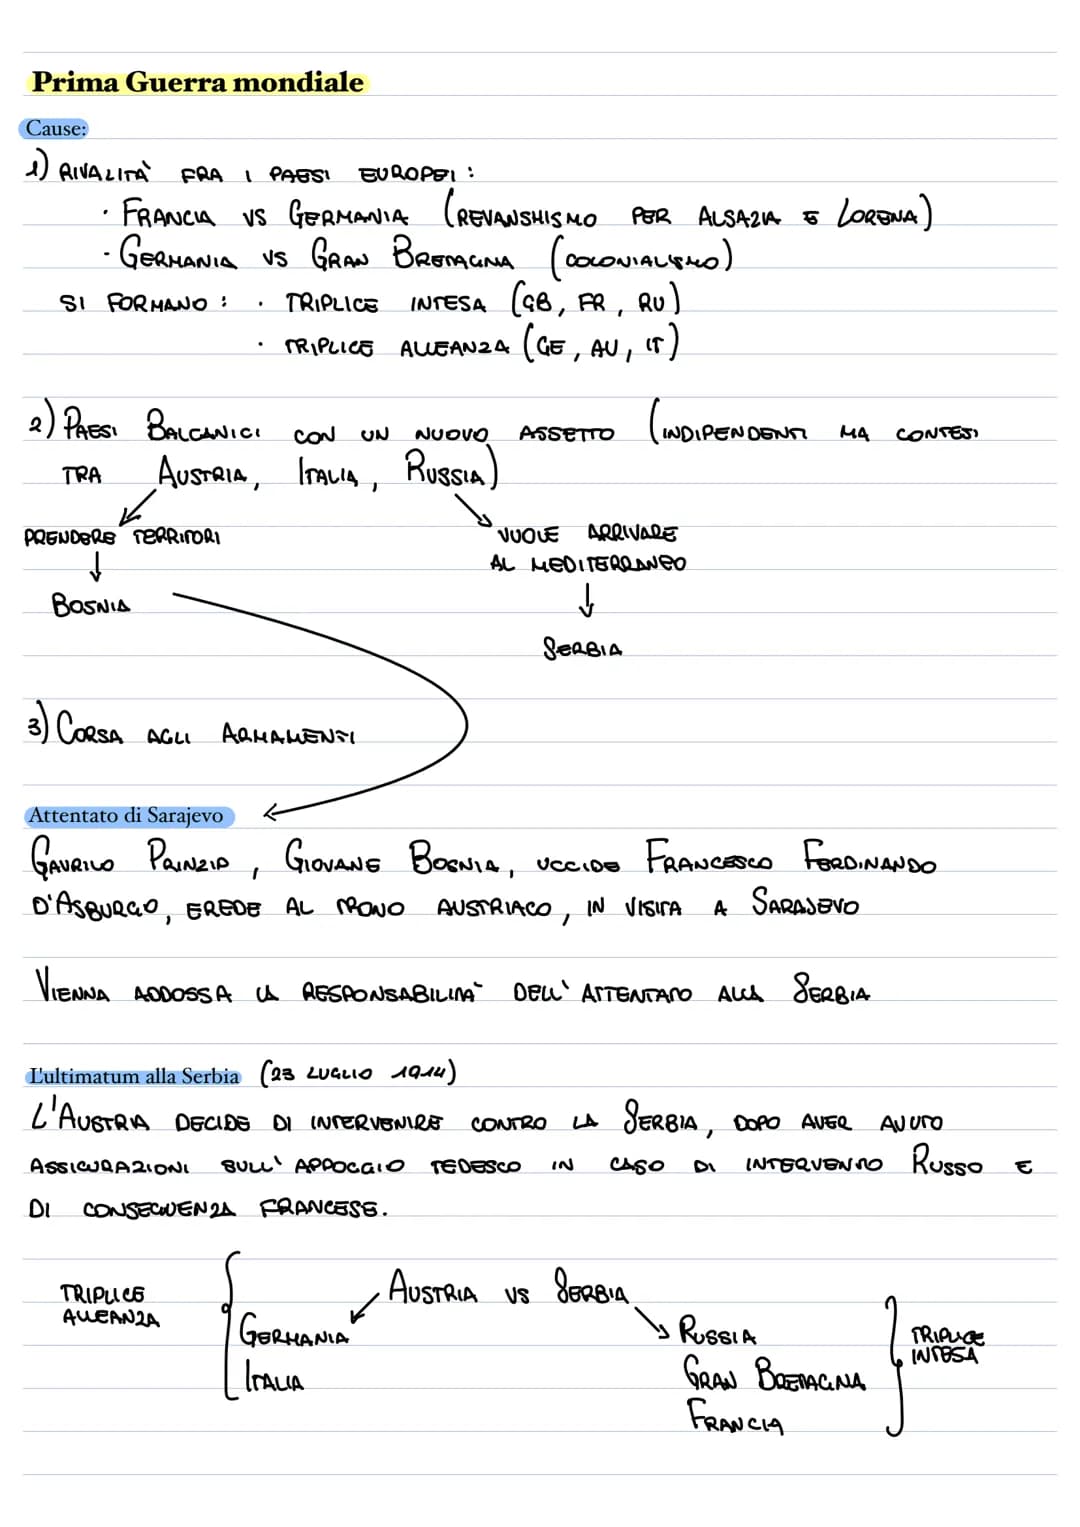 Prima Guerra mondiale
Cause:
1) RIVALITÀ FRA I PAESI EUROPEI:
· FRANCIA VS GERMANIA (REVANSHISMO PER ALSAZIA E LORENA)
· GERMANIA VS GRAN BRETAGNA (COLONIALISMO)
SI FORMANO: · TRIPLICE INTESA (GB, FR, RU)
· TRIPLICE ALLEANZA (GE, AU, IT)
2) PAESI BALCANICI CON UN NUOVO ASSETTO (INDIPENDENTI MA CONTESI
TRA AUSTRIA, ITALIA, RUSSIA)
PRENDERE TERRITORI VUOLE ARRIVARE
AL MEDITERRANEO
BOSNIA
SERBIA
3) CORSA AGLI ARMAMENTI
Attentato di Sarajevo
GAVRILO PRINZIP, GIOVANE BOSNIA, UCCIDE FRANCESCO FERDINANDO
D'ASBURGO, EREDE AL TRONO AUSTRIACO, IN VISITA A SARAJEVO
VIENNA ADDOSSA LA RESPONSABILITÀ DELL'ATTENTATO ALLA SERBIA
L'ultimatum alla Serbia (23 LUGLIO 1914)
L'AUSTRIA DECIDE DI INTERVENIRE CONTRO LA SERBIA, DOPO AVER AVUTO
ASSICURAZIONI SULL'APPOGGIO TEDESCO IN CASO DI INTERVENTO RUSSO E
DI CONSEGUENZA FRANCESE.
AUSTRIA VS SERBIA
TRIPLICE
ALLEANZA
GERMANIA
ITALIA
RUSSIA
GRAN BRETAGNA
FRANCIA
TRIPLICE
INTESA